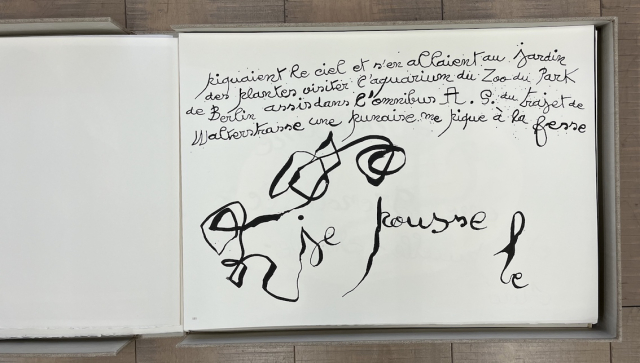 piquaient le ciel et s'en allaient au jardin
des plantes visiter l'aquarium du Zoo du Park
de Berlin assis dans l'omnibus A. G. du trajet de
Walterstrasse une punaise me pique à la fesse
je pousse le